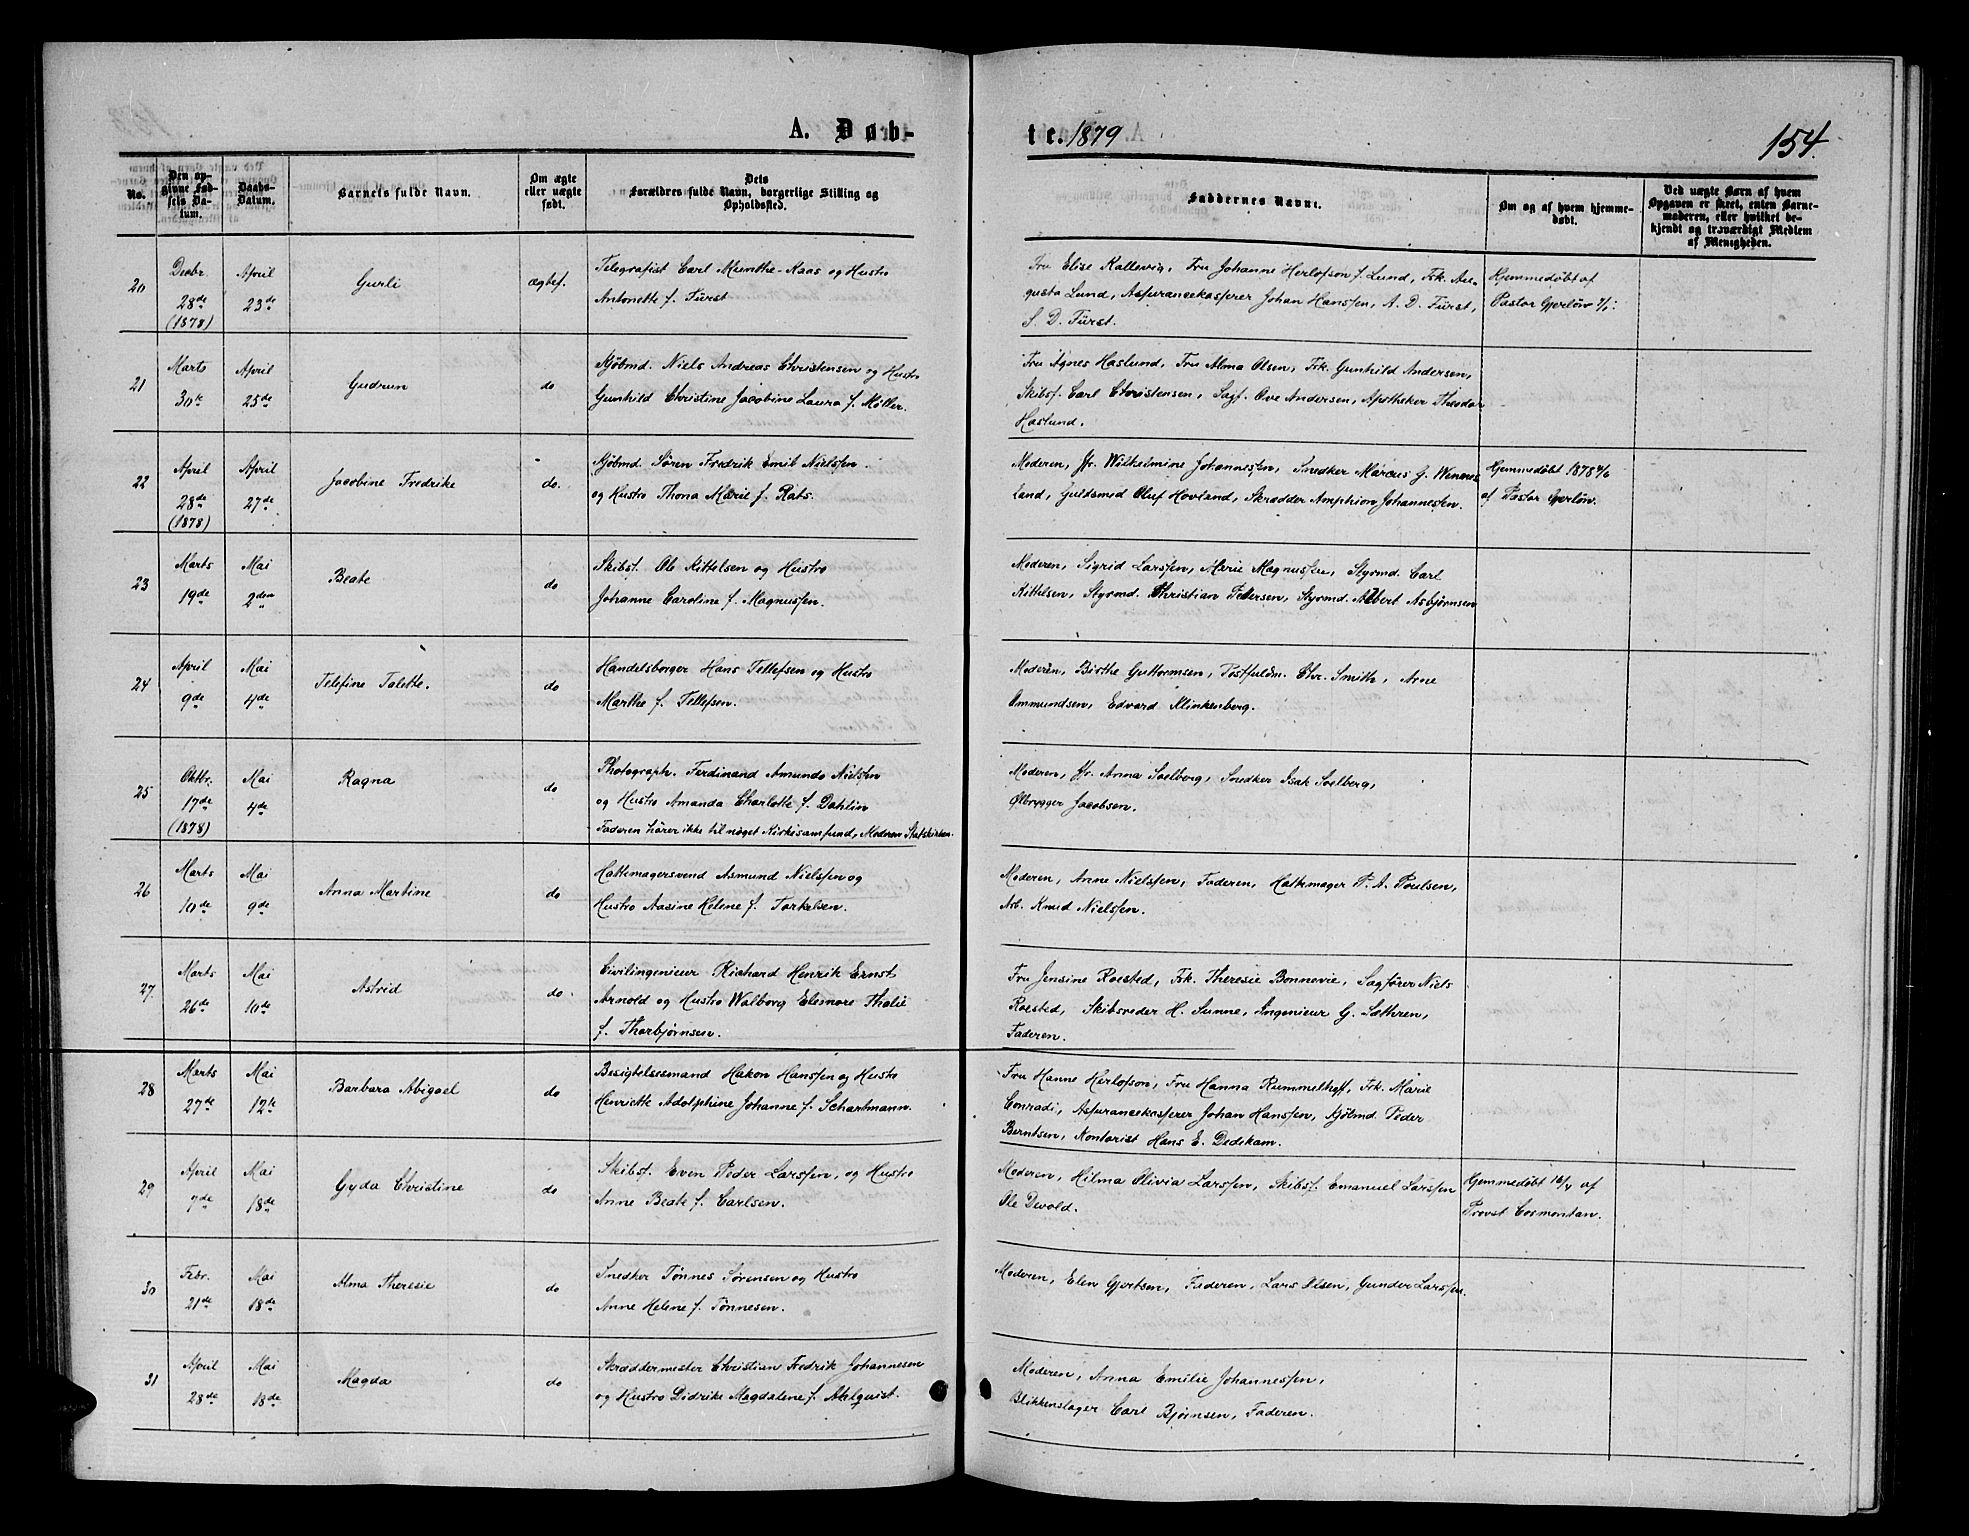 A. Døb-
te. 1879
154.
No.
Den op-
givne Fød-
sels Da-
tum.
Daabs-
Datum.
Barnets fulde Navn.
Om ægte
eller uægte
født.
Dets
Forældres fulde Navn, borgerlige Stilling og
Opholdssted.
Faddernes Navne.
Om og af hvem hjemme-
døbt.
Ved uægte Børn af hvem
Opgaven er skeet, enten Barne-
moderen, eller hvilket be-
kjendt og troværdigt Medlem
af Menigheden.
20
Decbr.
28de
(1878)
April
23de
Gurli
ægtef.
Telegrafist Carl Munthe-Kaas og Hustro
Antonette f. Fürst
Fru Elise Kallevig, Fru Johanne Herlofson f. Lund, Frk. Au-
gusta Lund, Assurancekasserer Johan Hanssen, A. D. Fürst,
S. D. Fürst.
Hjemmedøbt af
Pastor Gjerløw
21
Marts
30te
April
25de
Gudrun
do
Kjøbmd. Niels Andreas Christensen og Hustro
Gunhild Christine Jacobine Laura f. Møller.
Fru Agnes Haslund, Fru Alma Olsen, Frk. Gunhild Andersen,
Skibsf. Carl Christensen, Sagf. Ove Andersen, Apotheker Theodor
Haslund.
22
April
28de
(1878)
April
27de
Jacobine Fredrike
do.
Kjøbmd. Sören Fredrik Emil Nielssen
og Hustro Thona Marie f. Rats.
Moderen, Jfr. Wilhelmine Johannessen, Snedker Marcus J. Wennes
land, Guldsmed Oluf Hovland, Skrædder Amphion Johannessen.
Hjemmedøbt 1878
af Pastor Gjerløw.
23
Marts
19de
Mai
2den
Beate
do
Skibsf. Ole Kittelsen og Hustro
Johanne Caroline f. Magnussen.
Moderen, Sigrid Larssen, Marie Magnussen, Styrmd. Carl
Kittelsen, Styrmd. Christian Petersen, Styrmd. Albert Asbjørnsen
24
April
9de
Mai
4de
Telefine Talette.
do
Handelsborger Hans Tellefsen og Hustro
Marthe f. Tellefsen.
Moderen, Birthe Guttormsen, Postfuldm. Chr. Smith, Arne
Ommundsen, Edvard Klinkenberg.
25
Oktbr.
17de
(1878)
Mai
4de
Ragna
do
Photograph. Ferdinand Amundo Nielsen
og Hustro Amanda Charlotte f. Dahlin
Faderen hører ikke til noget Kirkesamfund, Moderen Statskirken.
Moderen, Jfr. Anna Soelberg, Snedker Isak Soelberg,
Ølbrygger Jacobsen.
26
Marts
10de
Mai
9de
Anna Martine
do
Hattemagersvend Asmund Nielssen og
Hustro Aasine Helene f. Torkelsen.
Moderen, Anne Nielssen, Faderen, Hattemager P. A. Poulsen,
Arb. Knud Nielssen.
27.
Marts
26de
Mai
10de
Astrid
do.
Civilingenieur Richard Henrik Ernst
Arnold og Hustro Walborg Eleonore Thalie
f. Thorbjørnsen.
Fru Jensine Roested, Frk. Theresie Bonnevie, Sagfører Niels
Roested, Skibsreder H. Sunne, Ingenieur G. Sæthren,
Faderen.
28
Marts
27de
Mai
12te
Barbara Abigael
do
Besigtelsesmand Hakon Hanssen og Hustro
Henriette Adolphine Johanne f. Schartmann.
Fru Hanne Herlofson, Fru Hanna Rummelhoff, Frk. Marie
Conradi, Assurancekasserer Johan Hanssen, Kjöbmd. Peder
Berntsen, Kontorist Hans E. Dedekam.
29
April
7de
Mai
18de
Gyda Christine
do
Skibsf. Even Peder Larssen, og Hustro
Anne Beate f. Carlsen.
Moderen, Hilma Olivia Larssen, Skibsf. Emanuel Larssen
Ole Devold.
Hjemmedøbt 16/4 af
Provst Cormontan.
30
Febr.
21de
Mai
18de
Alma Theresie
do
Snedker Tönnes Sørensen og Hustro
Anne Helene f. Tönnesen.
Moderen, Elen Gjertsen, Faderen, Lars Olsen, Gunder Larssen.
31
April
28de
Mai
18de
Magda
do
Skræddermester Christian Fredrik Johannesen
og Hustro Didrike Magdalene f. Ahlquist.
Moderen, Anna Emilie Johannessen,
Blikkenslager Carl Bjørnsen, Faderen.